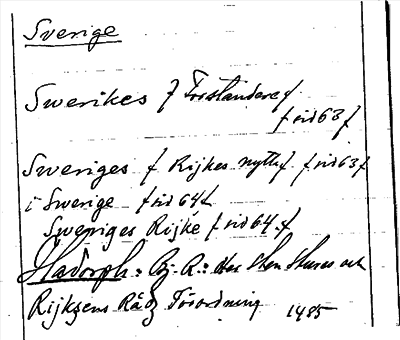 Sverige
Swerikes / Förståndare /
/ sid 63 /
Sweriges / Rijkes nytte / / sid 63 /
i Swerige / sid 64 /
Sweriges Rijke / sid 64. /
Hadorph: Bj. R.: Her Sten Stures och
Rijkzens Rådz Förordning 1485